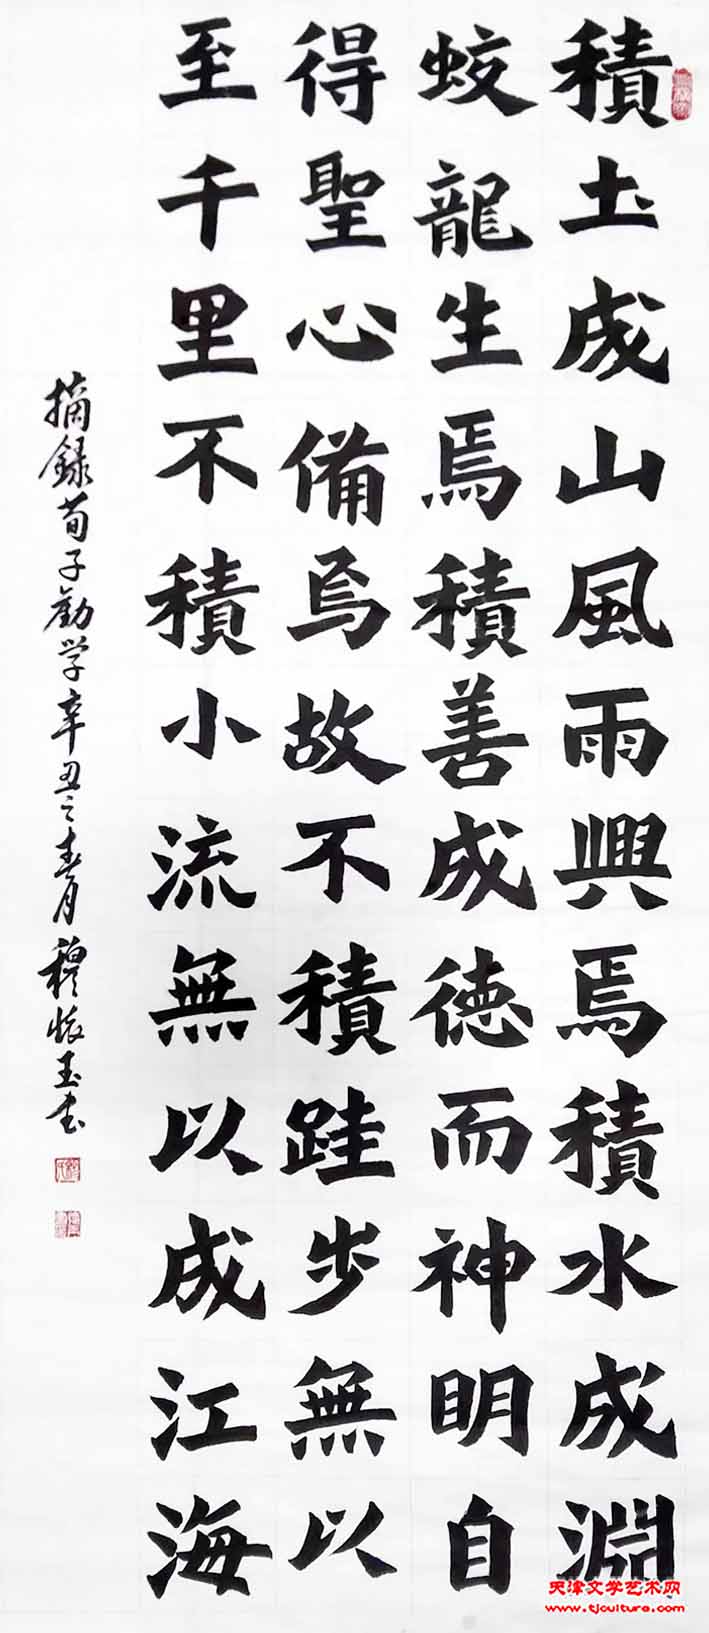 積土成山風雨興焉積水成淵
蛟龍生焉積善成徳而神明自
得聖心備焉故不積跬步無以
至千里不積小流無以成江海
摘録荀子勸学辛丑之春月穆怀玉书
天津文学艺术网
www.tjculture.com